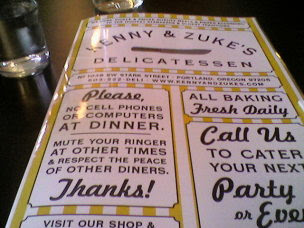 KENNY & ZUKE'S
DELICATESSEN
1038 SW STARK STREET · PORTLAND, OREGON 97205
503-222-DELI WWW.KENNYANDZUKES.COM
Please,
NO CELL PHONES
OR COMPUTERS
AT DINNER.
MUTE YOUR RINGER
AT OTHER TIMES
& RESPECT THE PEACE
OF OTHER DINERS.
Thanks!
VISIT OUR SHOP &
ALL BAKING
Fresh Daily
Call Us
TO CATER
YOUR NEXT
Party
or